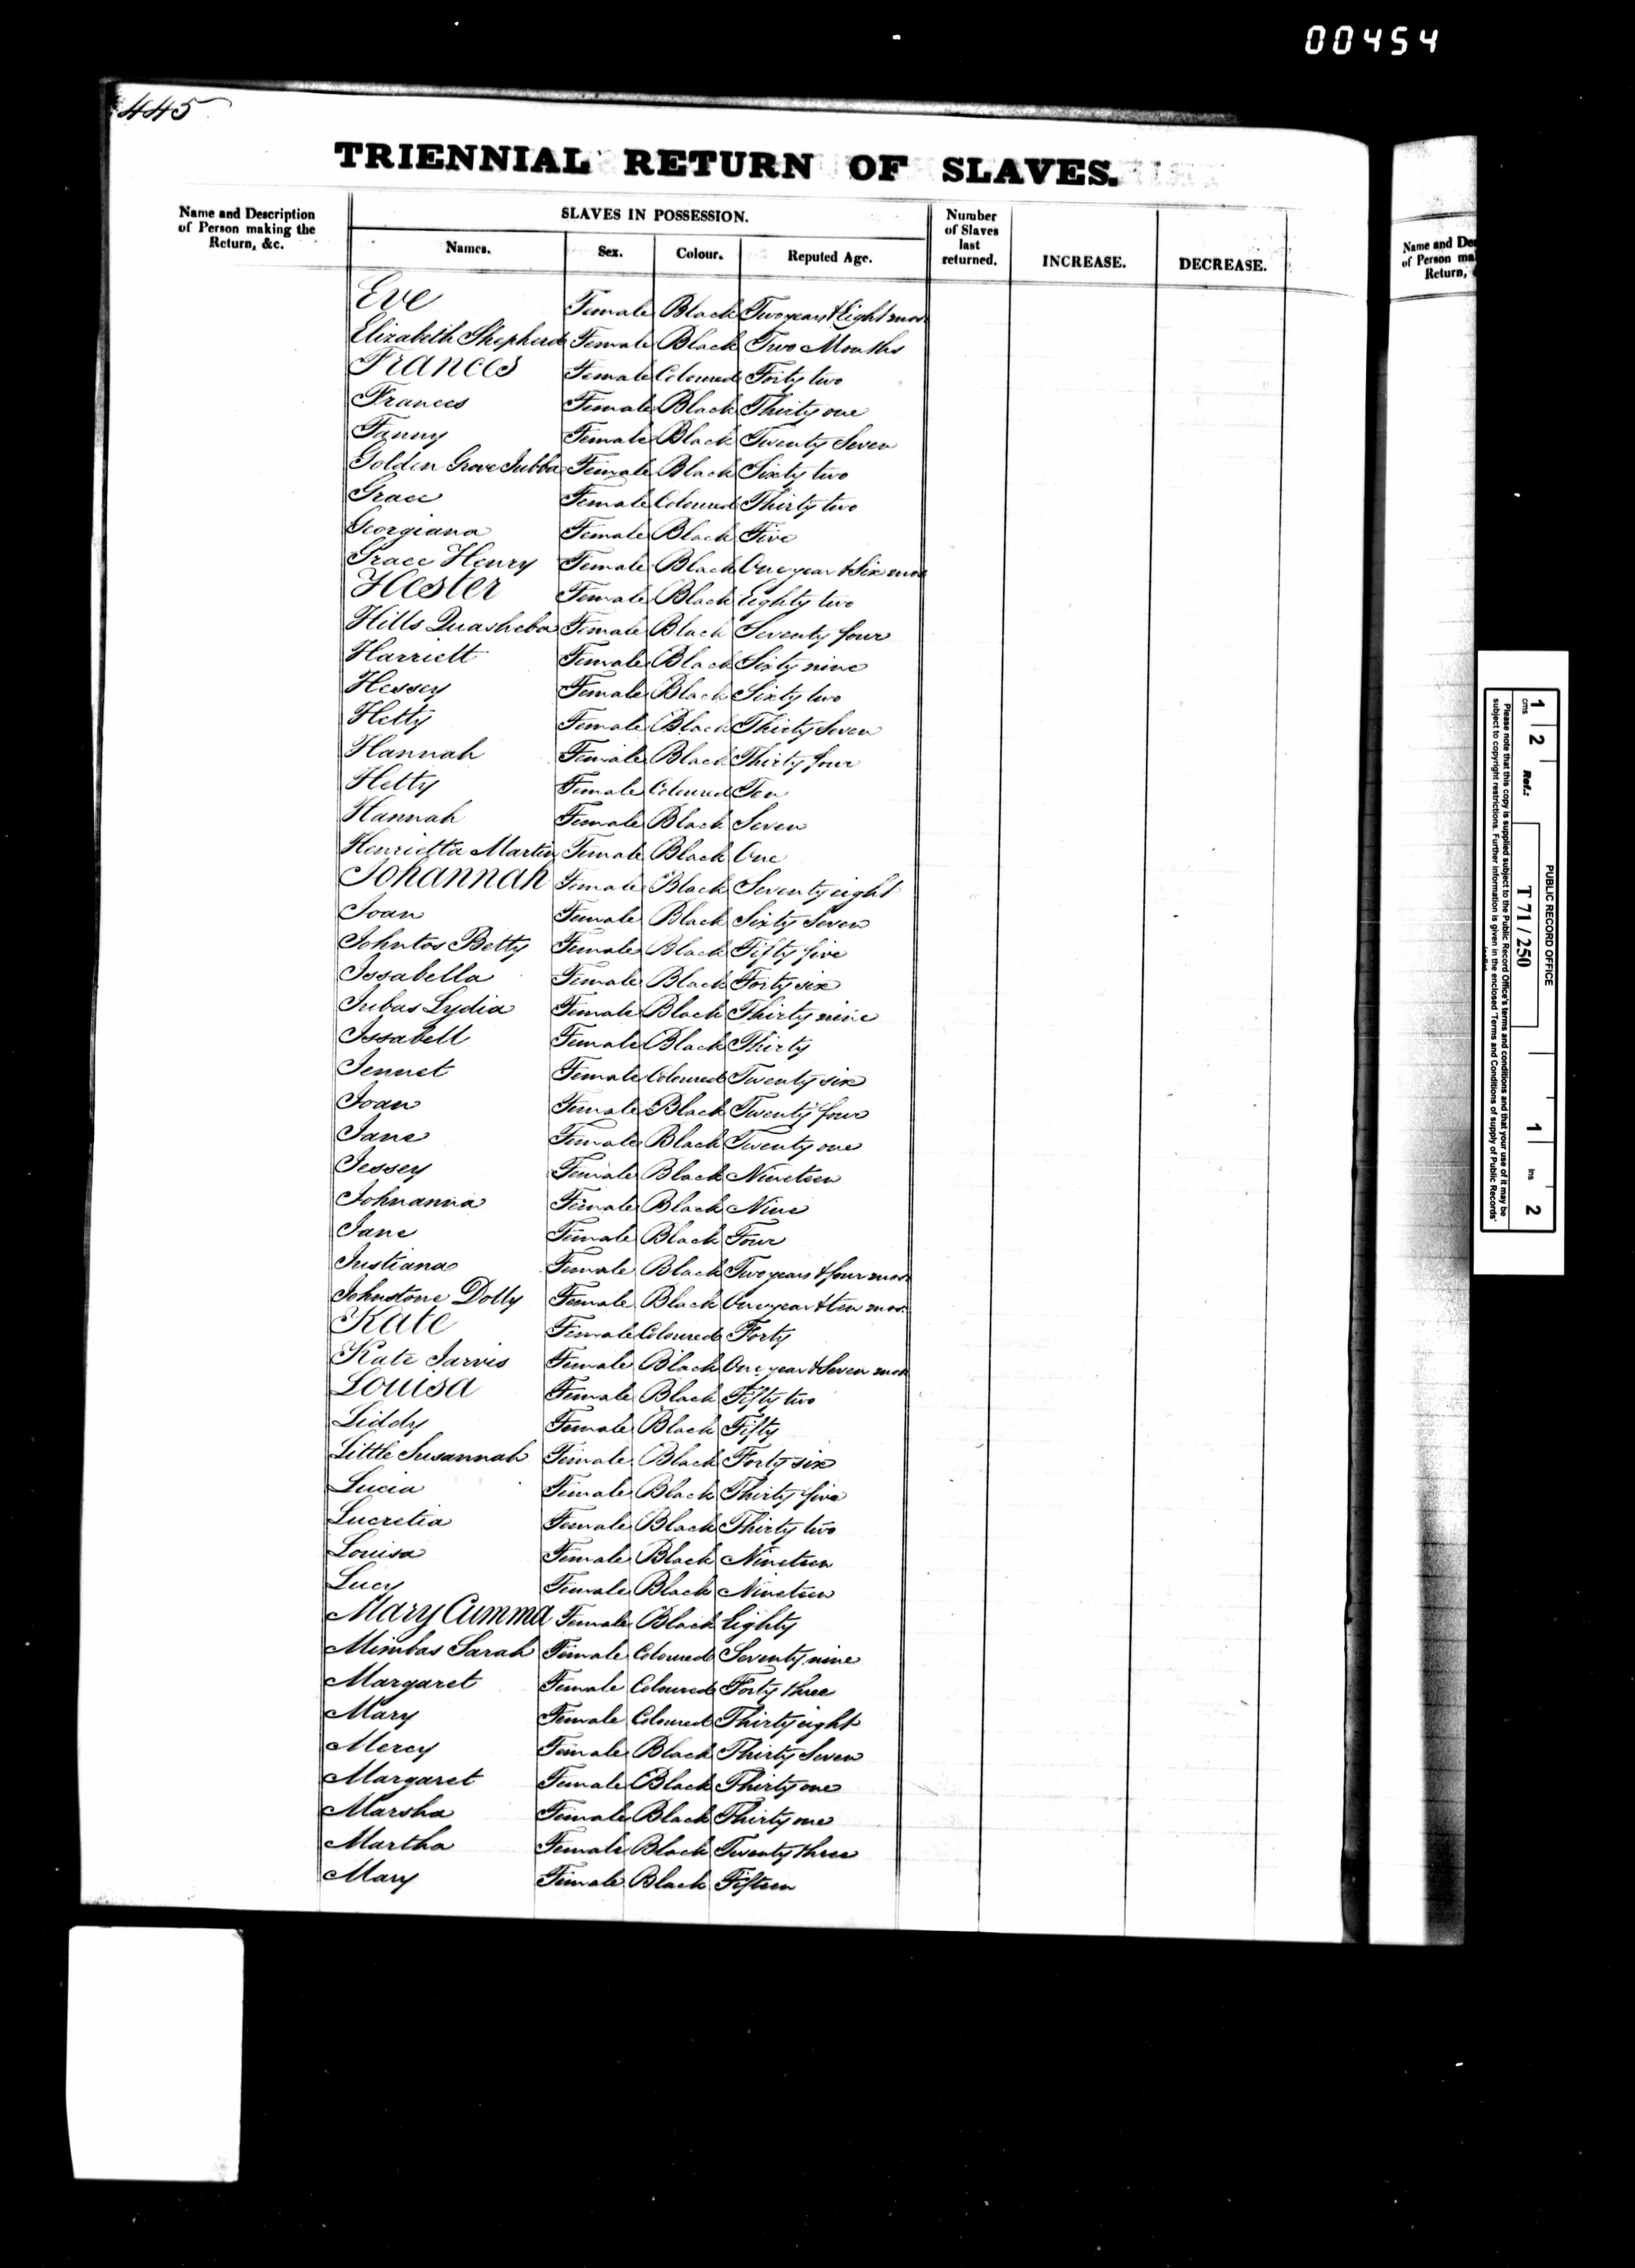 00454
445
TRIENNIAL RETURN OF SLAVES.
Name and Description of Person making the Return, &c.
SLAVES IN POSSESSION.
Names. Sex. Colour. Reputed Age.
Number of Slaves last returned.
INCREASE.
DECREASE.
Eve Female Black Two years & Eight mos
Elizabeth Shepherd Female Black Two Months
Frances Female Coloured Forty two
Frances Female Black Thirty one
Fanny Female Black Twenty Seven
Golden Grove Jubba Female Black Sixty two
Grace Female Coloured Thirty two
Georgiana Female Black Five
Grace Henry Female Black One year & Six mos
Hester Female Black Eighty two
Hills Quasheba Female Black Seventy four
Harriett Female Black Sixty nine
Hessey Female Black Sixty two
Hetty Female Black Thirty Seven
Hannah Female Black Thirty four
Hetty Female Coloured Ten
Hannah Female Black Seven
Henrietta Martin Female Black One
Johannah Female Black Seventy eight
Joan Female Black Sixty Seven
Johntos Betty Female Black Fifty five
Issabella Female Black Forty six
Jubas Lydia Female Black Thirty nine
Issabell Female Black Thirty
Jennet Female Coloured Twenty six
Joan Female Black Twenty four
Jane Female Black Twenty one
Jessey Female Black Nineteen
Johnanna Female Black Nine
Jane Female Black Four
Justiana Female Black Two years & four mos
Johnstone Dolly Female Black One year & ten mos.
Kate Female Coloured Forty
Kate Jarvis Female Black One year & Seven mos
Louisa Female Black Fifty two
Liddy Female Black Fifty
Little Susannah Female Black Forty six
Lucia Female Black Thirty five
Lucretia Female Black Thirty two
Louisa Female Black Nineteen
Lucy Female Black Nineteen
Mary Cumma Female Black Eighty
Mimbas Sarah Female Coloured Seventy nine
Margaret Female Coloured Forty three
Mary Female Coloured Thirty eight
Mercy Female Black Thirty Seven
Margaret Female Black Thirty one
Marsha Female Black Thirty one
Martha Female Black Twenty three
Mary Female Black Fifteen
Name and De
of Person ma
Return,
PUBLIC RECORD OFFICE
1 2 1 2
cms Ref.: T 71 / 250 ins
Please note that this copy is supplied subject to the Public Record Office's terms and conditions and that your use of it may be
subject to copyright restrictions. Further information is given in the enclosed 'Terms and Conditions of supply of Public Records'